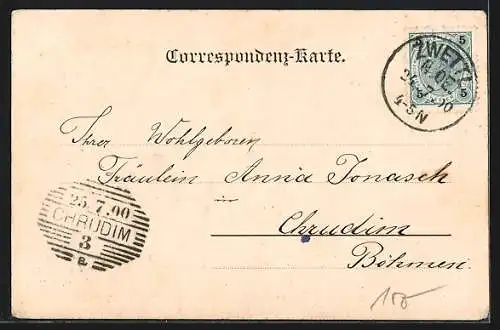 Correspondenz-Karte.
5
ZWETTL
N. OE.
24 7 00
4-5 N
5
Ihrer Wohlgeboren
Fräulein Anna Jonasch
in
Chrudim
Böhmen.
25.7.00
CHRUDIM
3
a.
100